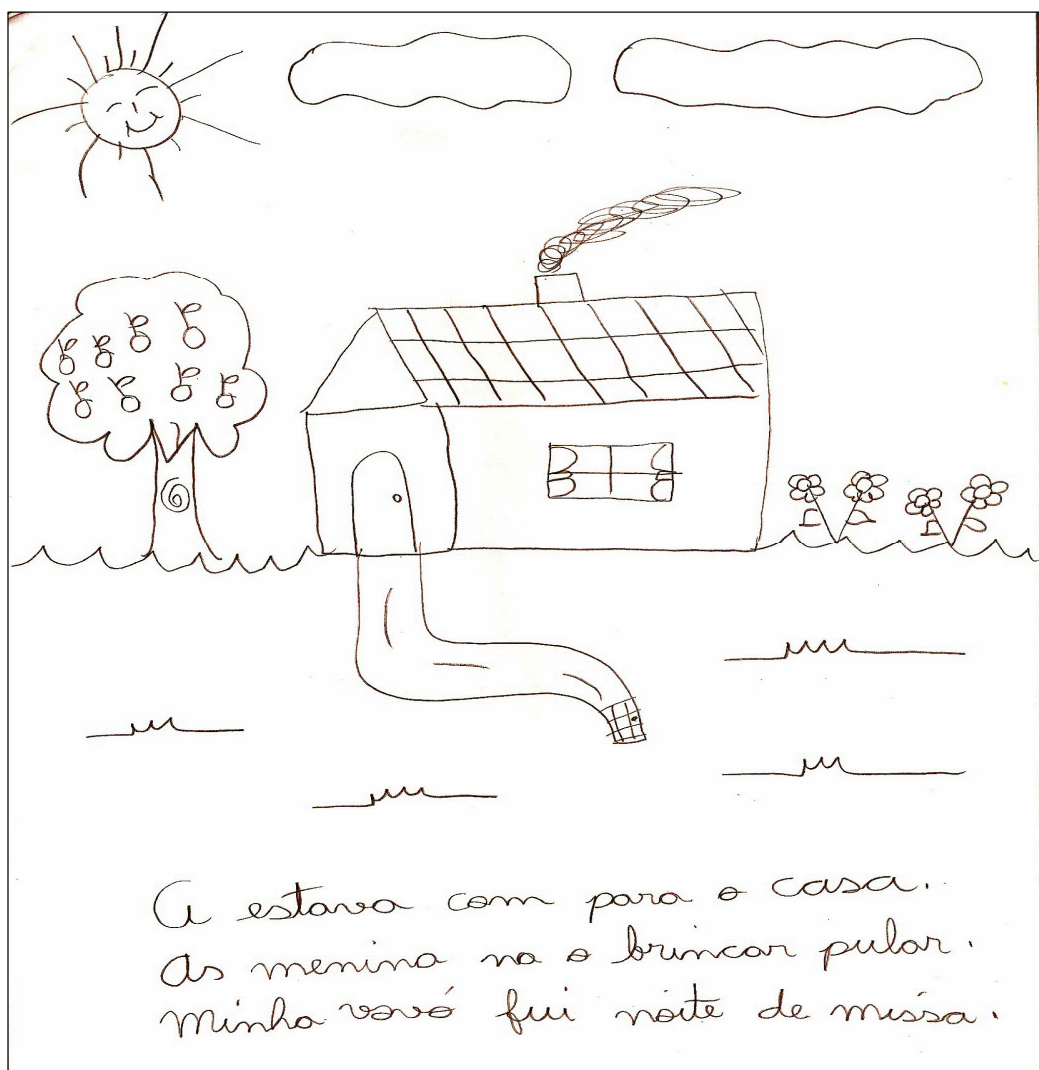 A estava com para o casa.
As menina na o brincar pular.
Minha vovó fui noite de missa.